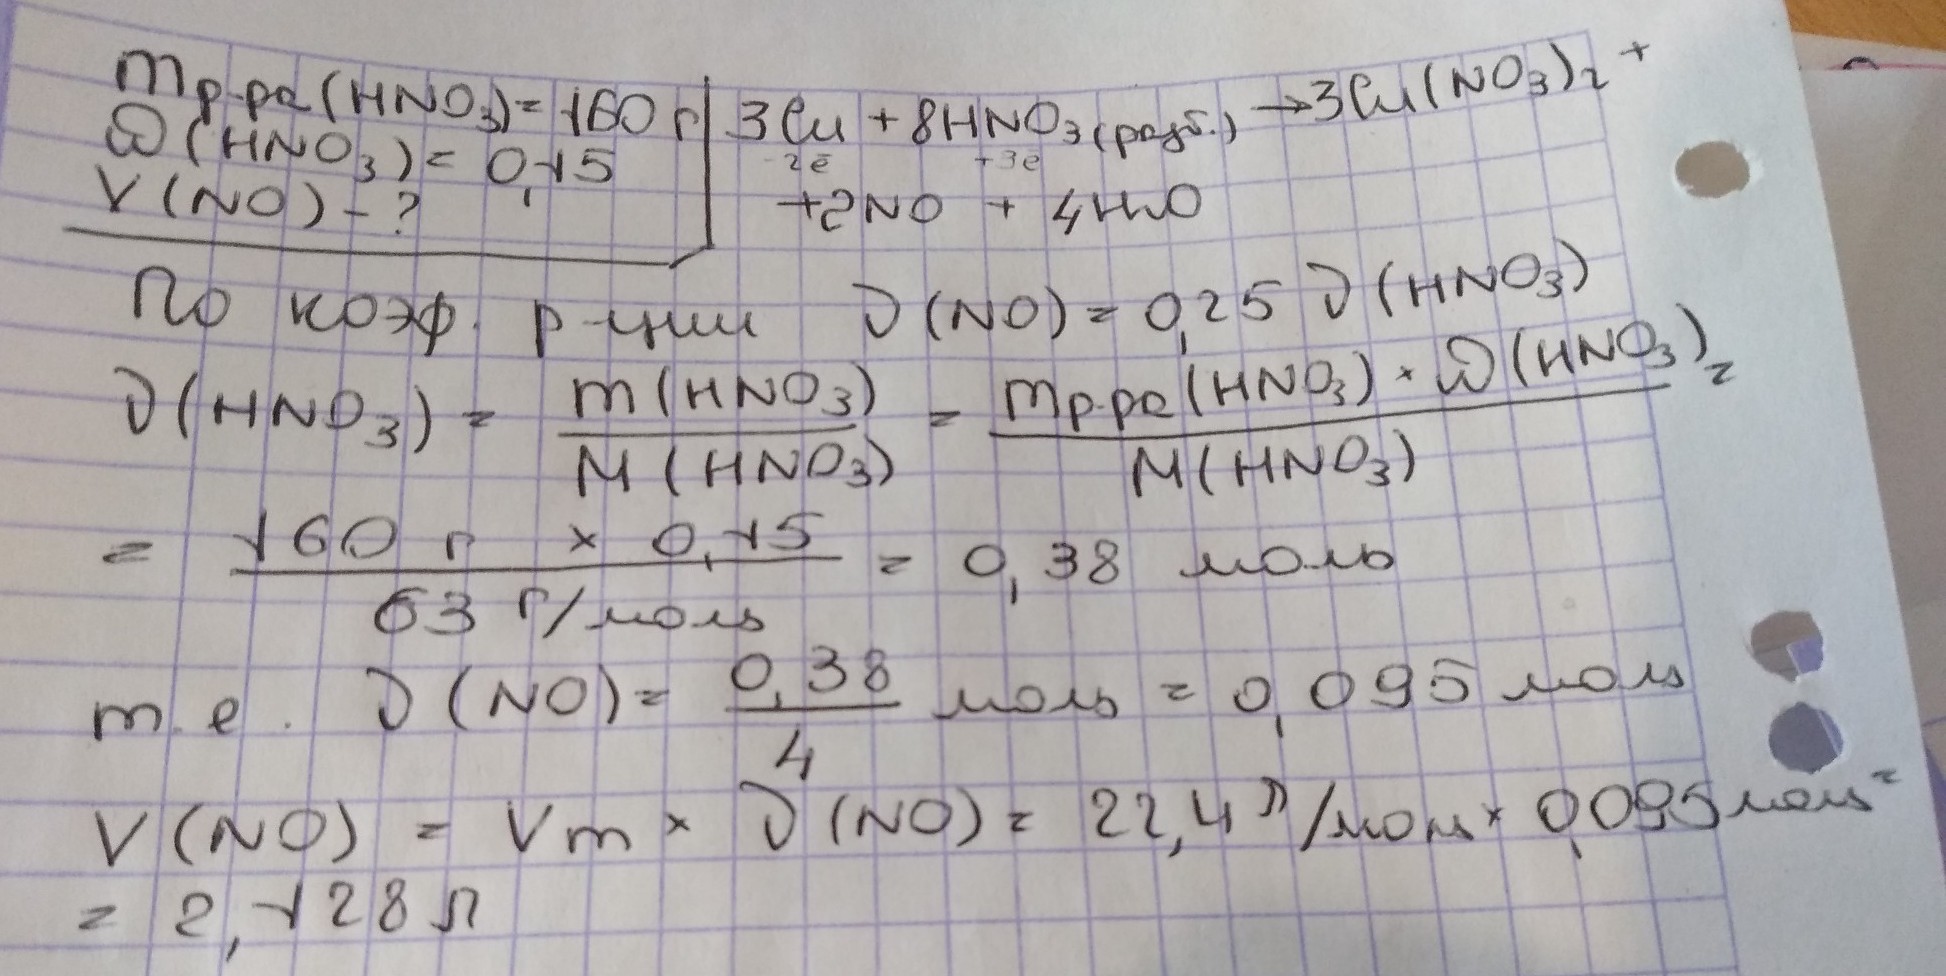 mр-ра(HNO3)=160 г
ω(HNO3)=0,15
V(NO)-?
3Cu + 8HNO3(разб.) → 3Cu(NO3)2 +
-2ē +3ē
+2NO + 4H2O
По коэф. р-ции ν(NO)=0,25 ν(HNO3)
ν(HNO3) = m(HNO3) / M(HNO3) = mр-ра(HNO3) × ω(HNO3) / M(HNO3) =
= 160 г × 0,15 / 63 г/моль = 0,38 моль
т.е. ν(NO)= 0,38 / 4 моль = 0,095 моль
V(NO) = Vm × ν(NO)= 22,4 л/моль × 0,095 моль =
= 2,128 л